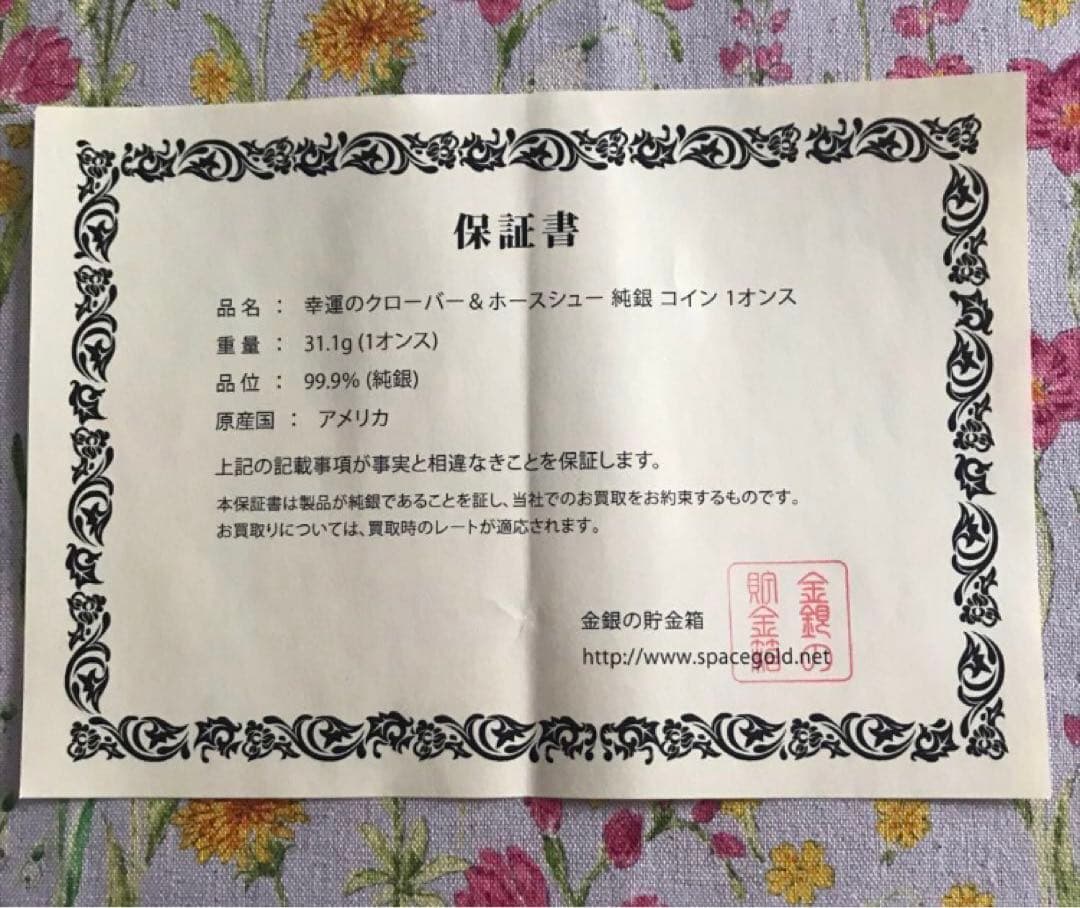 保証書
品名 ： 幸運のクローバー＆ホースシュー 純銀 コイン 1オンス
重量 ： 31.1g (1オンス)
品位 ： 99.9% (純銀)
原産国 ： アメリカ
上記の記載事項が事実と相違なきことを保証します。
本保証書は製品が純銀であることを証し、当社でのお買取をお約束するものです。
お買取りについては、買取時のレートが適応されます。
金銀の貯金箱
http://www.spacegold.net
金銀の
貯金箱